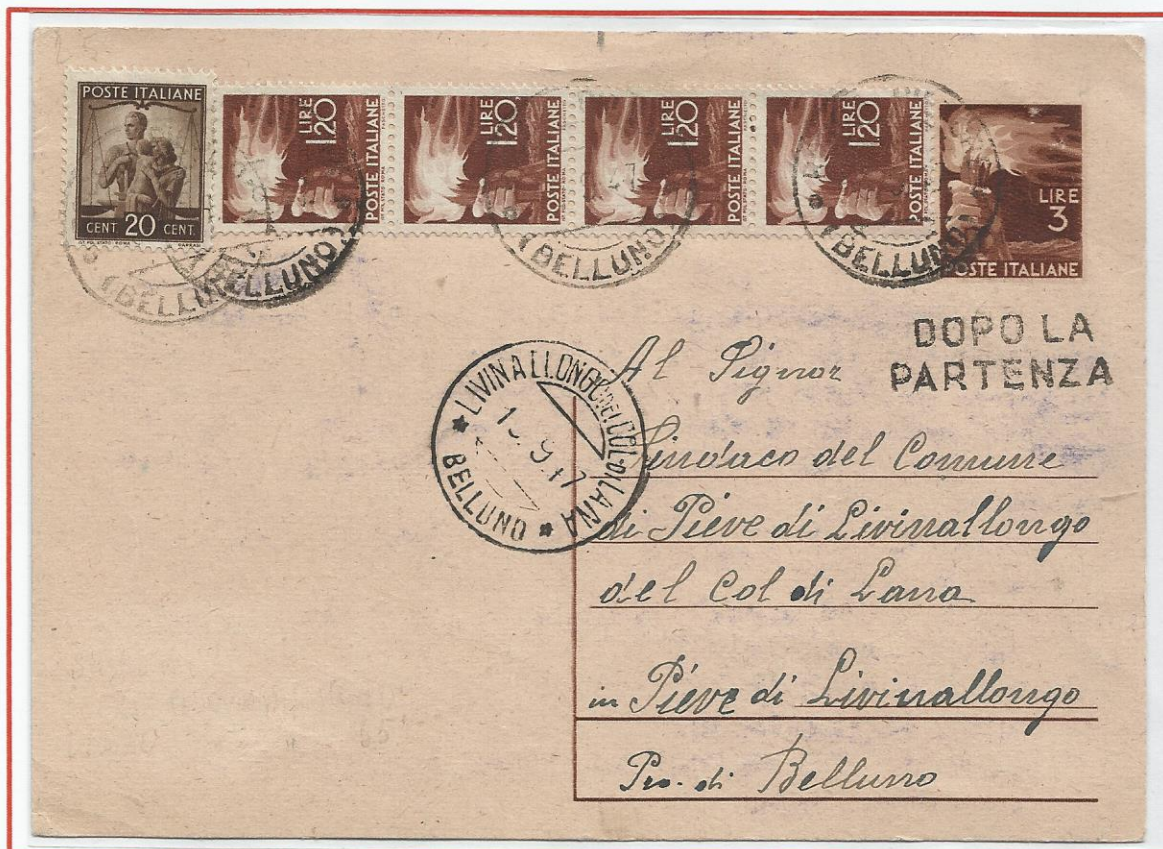 POSTE ITALIANE
CENT. 20 CENT.
LIRE 1.20
POSTE ITALIANE
LIRE 1.20
POSTE ITALIANE
LIRE 1.20
POSTE ITALIANE
LIRE 1.20
POSTE ITALIANE
LIRE
3
POSTE ITALIANE
(BELLUNO)
(BELLUNO)
(BELLUNO)
(BELLUNO)
DOPO LA
PARTENZA
LIVINALLONGO DEL COL DI LANA
BELLUNO
Al Signor
Sindaco del Comune
di Pieve di Livinallongo
del Col di Lana
in Pieve di Livinallongo
Pro. di Belluno